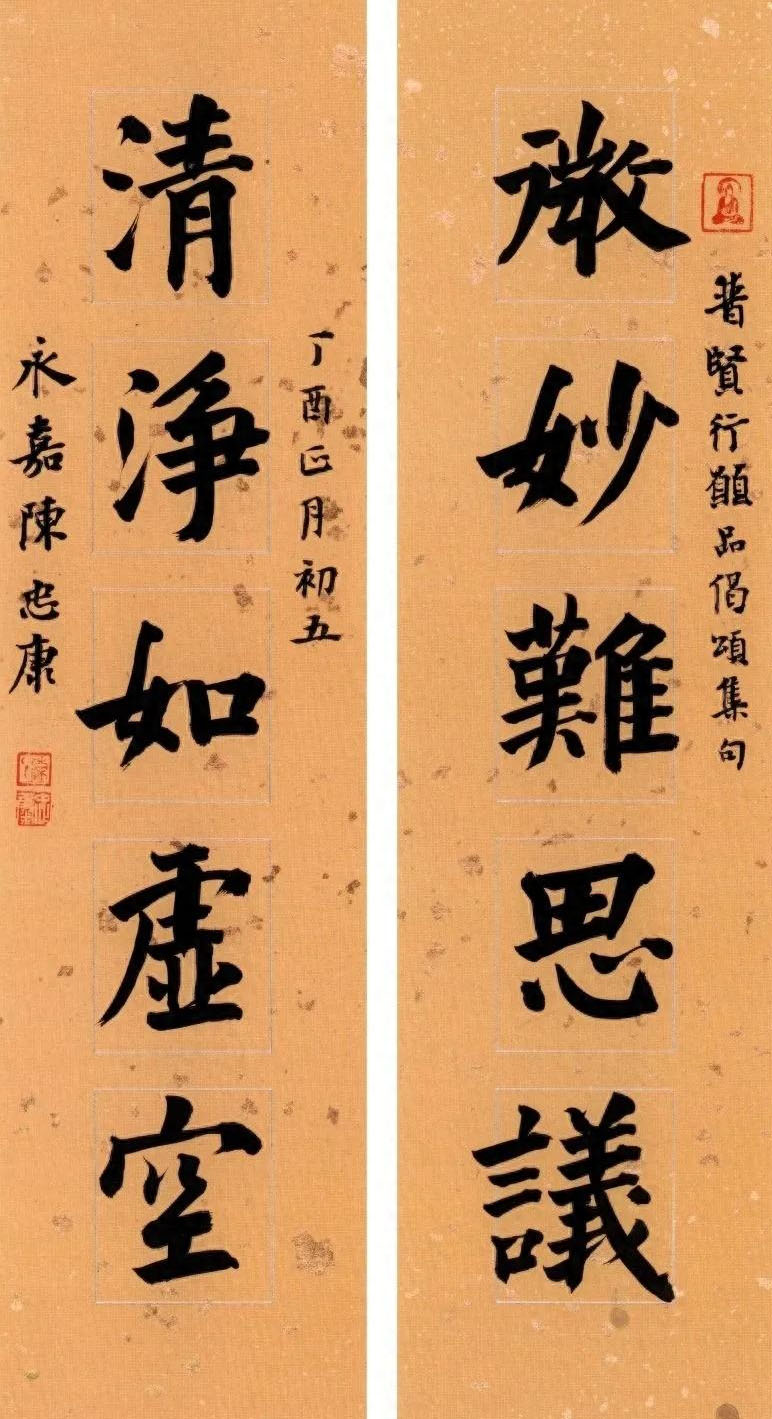 普賢行願品偈頌集句
微妙難思議
丁酉正月初五
清淨如虛空
永嘉陳忠康